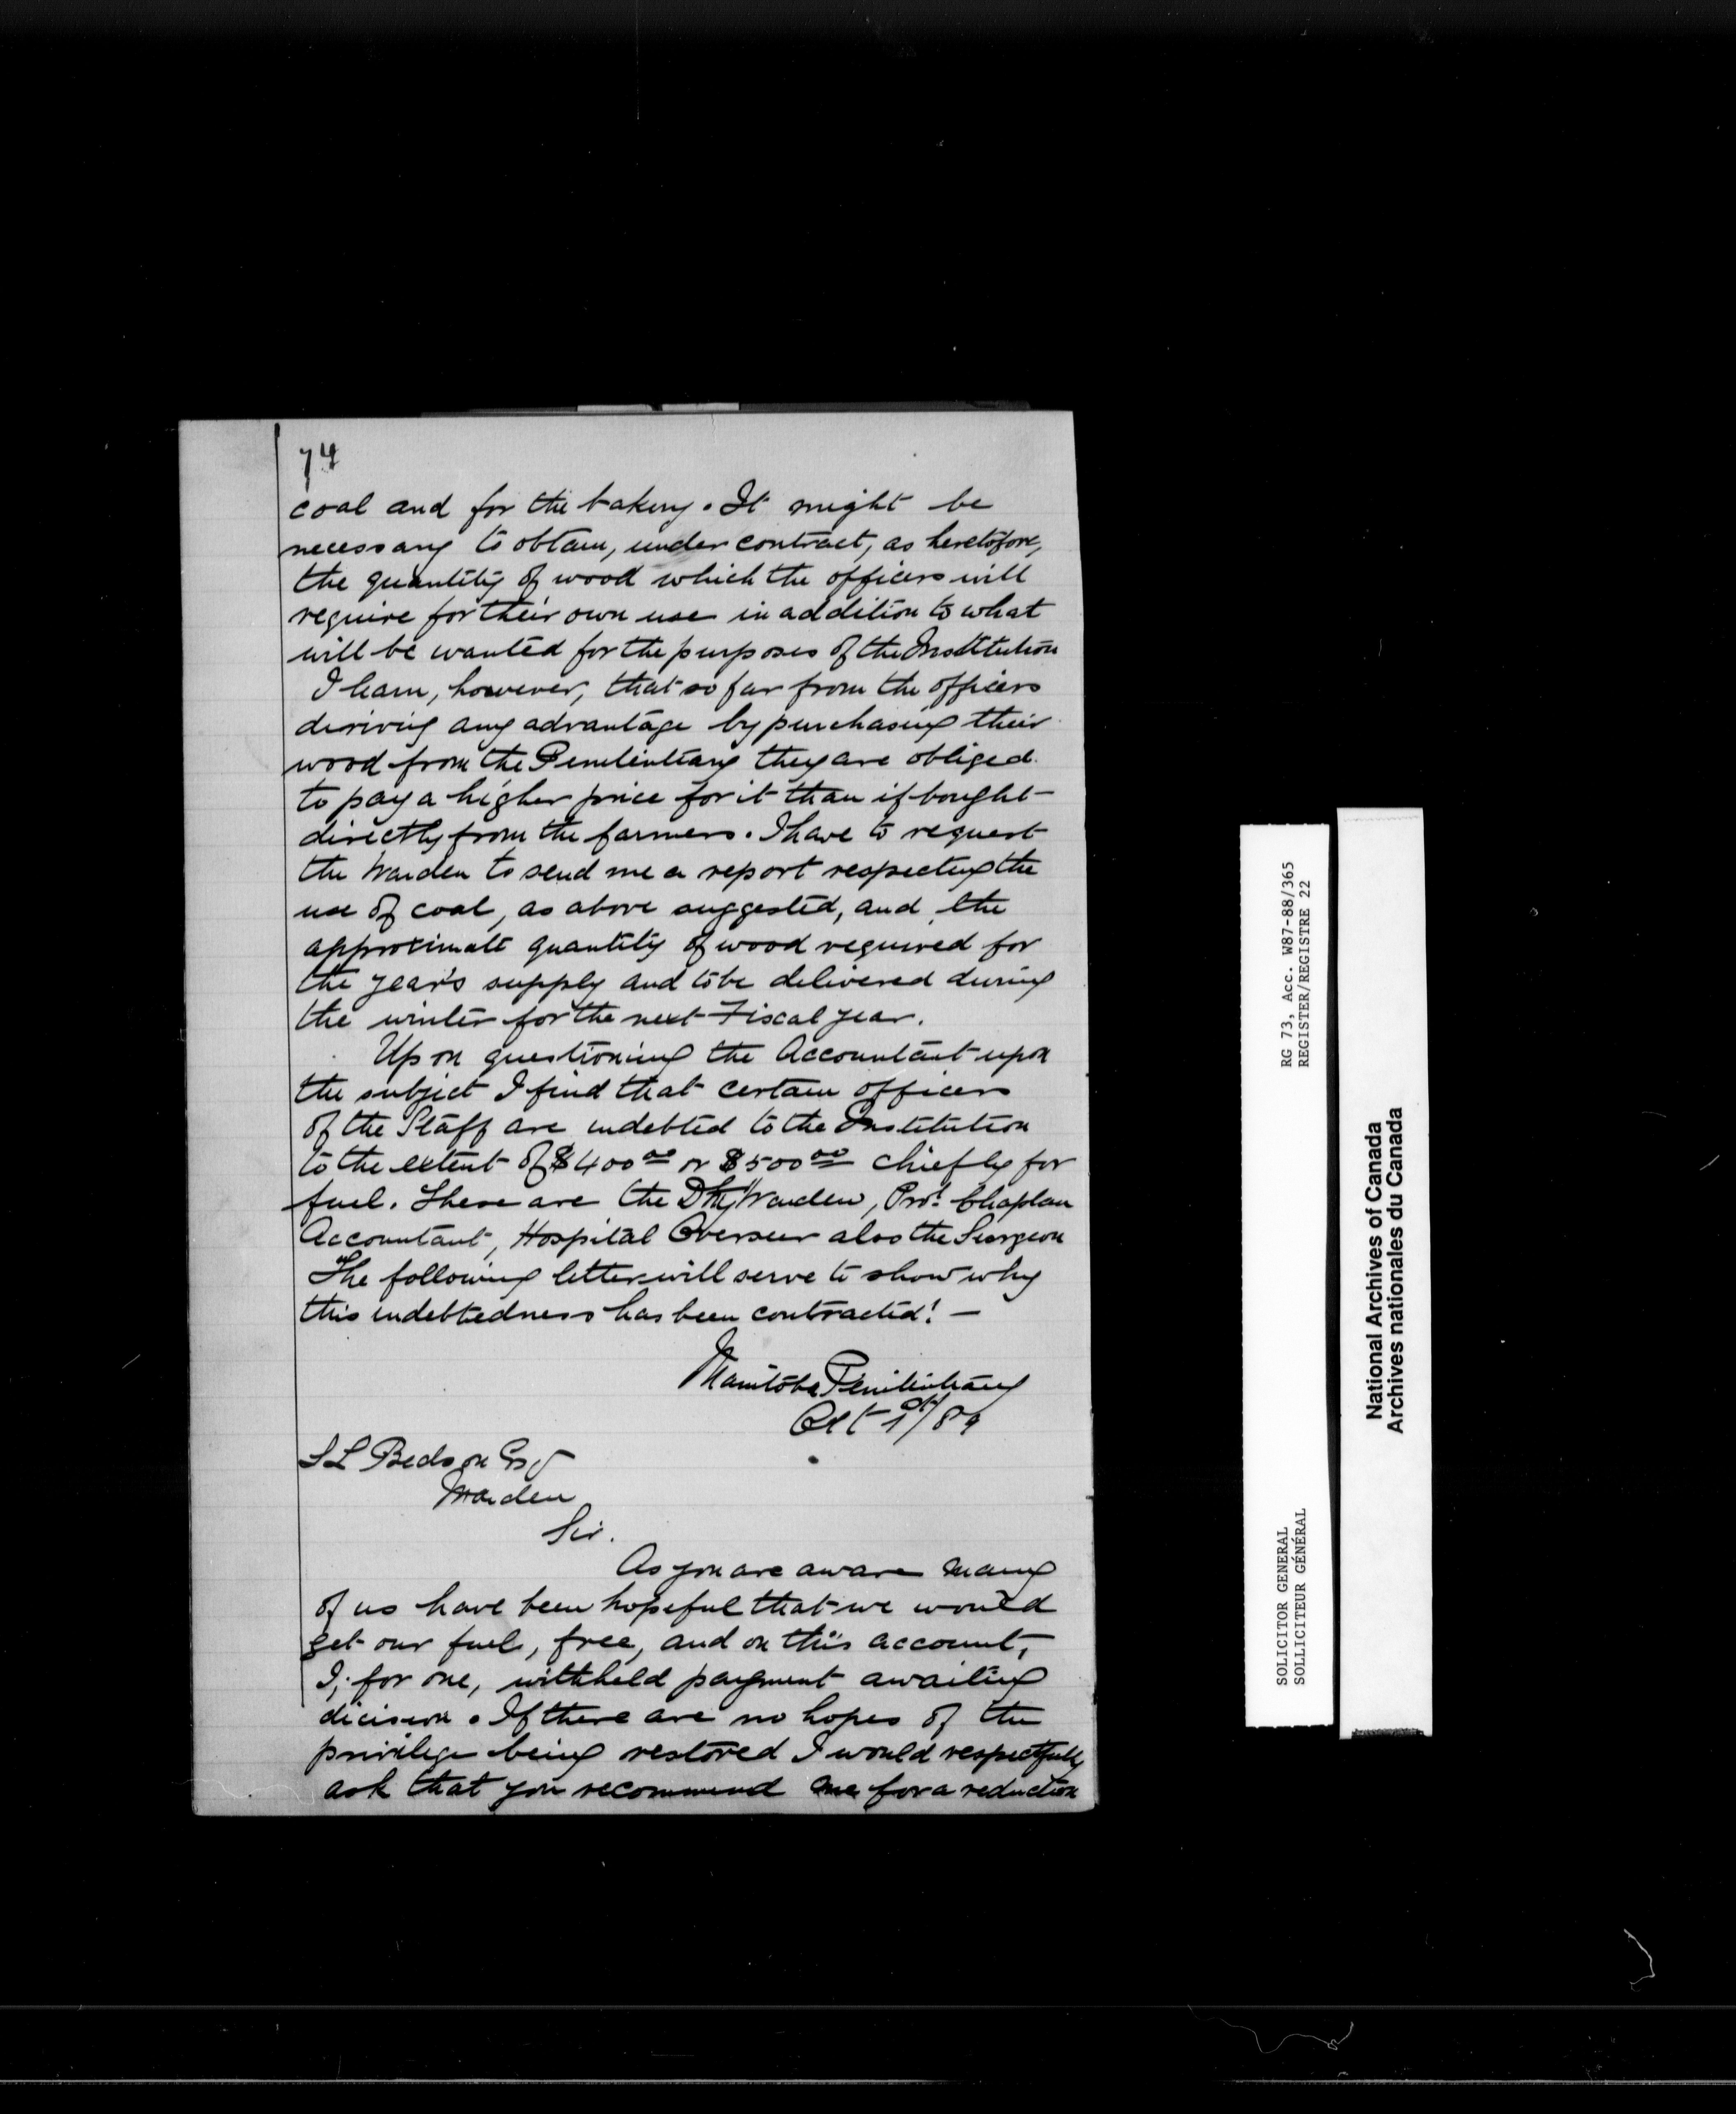 74
coal and for the bakery. It might be
necessary to obtain, under contract, as heretofore,
the quantity of wood which the officers will
require for their own use in addition to what
will be wanted for the purposes of the Institution
I learn, however, that so far from the officers
deriving any advantage by purchasing their
wood from the Penitentiary they are obliged
to pay a higher price for it than if bought
directly from the farmers. I have to request
the Warden to send me a report respecting the
use of coal, as above suggested, and the
approximate quantity of wood required for
the year's supply and to be delivered during
the winter for the next Fiscal year.
Upon questioning the Accountant upon
the subject I find that certain officers
of the Staff are indebted to the Institution
to the extent of $400.00 or $500.00 chiefly for
fuel. These are the Dty Warden, Prot. Chaplan
Accountant, Hospital Overseer also the Surgeon
The following letter will serve to show why
this indebtedness has been contracted! —
Manitoba Penitentiary
Oct 1st/89
S L Bedson Esq
Warden
Sir.
As you are aware many
of us have been hopeful that we would
get our fuel, free, and on this account,
I, for one, withheld payment awaiting
decision. If there are no hopes of the
privilege being restored I would respectfully
ask that you recommend me for a reduction
RG 73, Acc. W87-88/365
REGISTER/REGISTRE 22
SOLICITOR GENERAL
SOLLICITEUR GÉNÉRAL
National Archives of Canada
Archives nationales du Canada